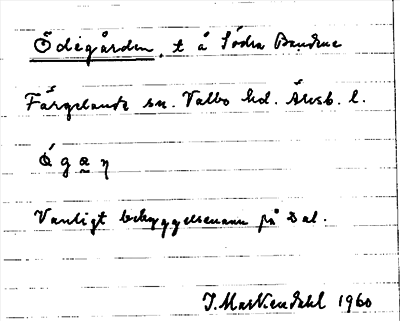 Ödegården, t å Södra Bandene
Färgelanda sn. Valbo hd. Älvsb. l.
Vanligt bebyggelsenamn på Dal.
1960